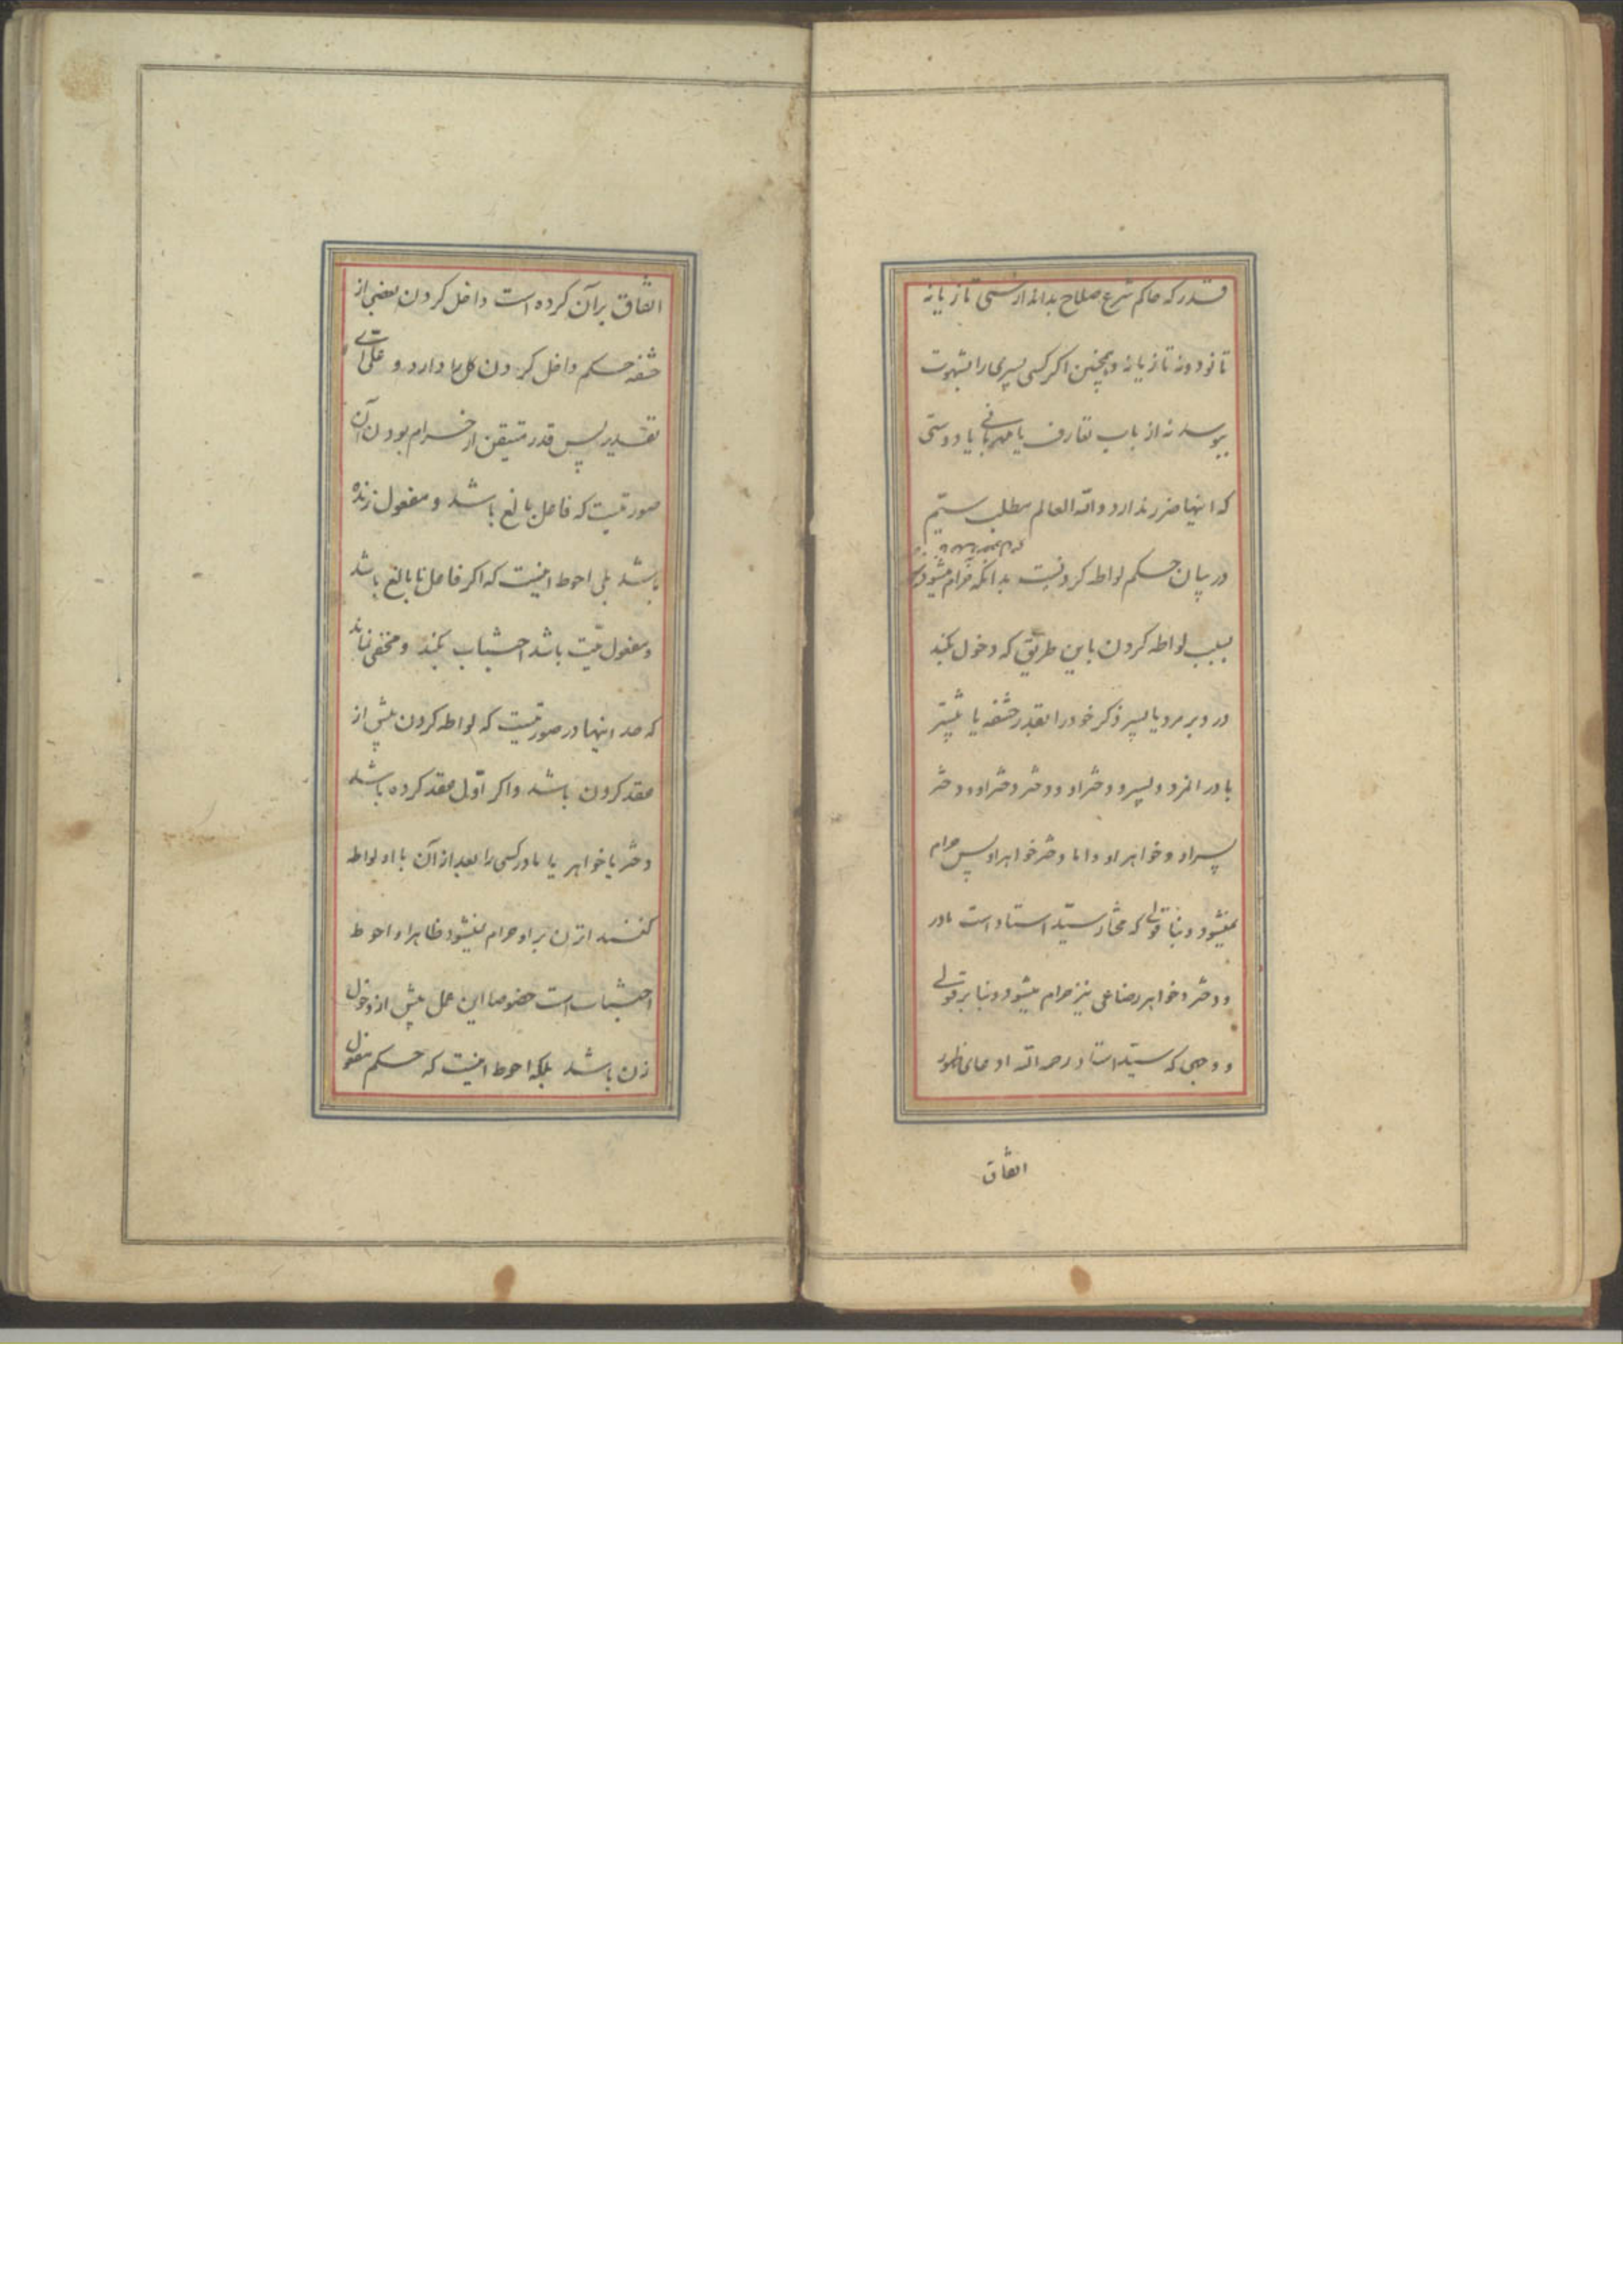 قدر که حاکم شرع صلاح بداند از سی تازیانه
تا نود و نه تازیانه و همچنین اگر کسی پسری را بشهوت
ببوسد نه از باب تعارف یا مهربانی یا دوستی
که اینها ضرر ندارد والله العالم مطلب ستیم
در بیان حکم لواطه کردنست بدانکه حرام میشود
بسبب لواطه کردن باین طریق که دخول بکند
در دبر مرد یا پسر ذکر خود را بقدر حشفه یا بیشتر
مادر انمرد و پسر و دختر او و دختر دختر او و دختر
پسر او و خواهر او و اما دختر خواهر او پس حرام
نمیشود و بنا بقولی که مختار سید استاد است مادر
و دختر و خواهر رضاعی نیز حرام میشود و بنا بر قولی
و وجهی که سید استاد رحمه الله ادعای ظهور
اتفاق
اتفاق بر آن کرده است داخل کردن بعضی از
حشفه حکم داخل کردن کل را دارد و علی ای
تقدیر پس قدر متیقن از حرام بودن آن
صورتیست که فاعل بالغ باشد و مفعول زنده
باشد بلی احوط اینست که اگر فاعل نابالغ باشد
و مفعول میّت باشد اجتناب بکند و مخفی نماند
که صد اینها در صورتیست که لواطه کردن پیش از
عقد کردن باشد و اگر اوّل عقد کرده باشد
دختر یا خواهر یا مادر کسی را بعد از آن با او لواطه
کند انزن بر او حرام نمیشود ظاهرا و احوط
اجتنابست خصوصا این عمل پیش از دخول
زن باشد بلکه احوط اینست که حکم مفعول